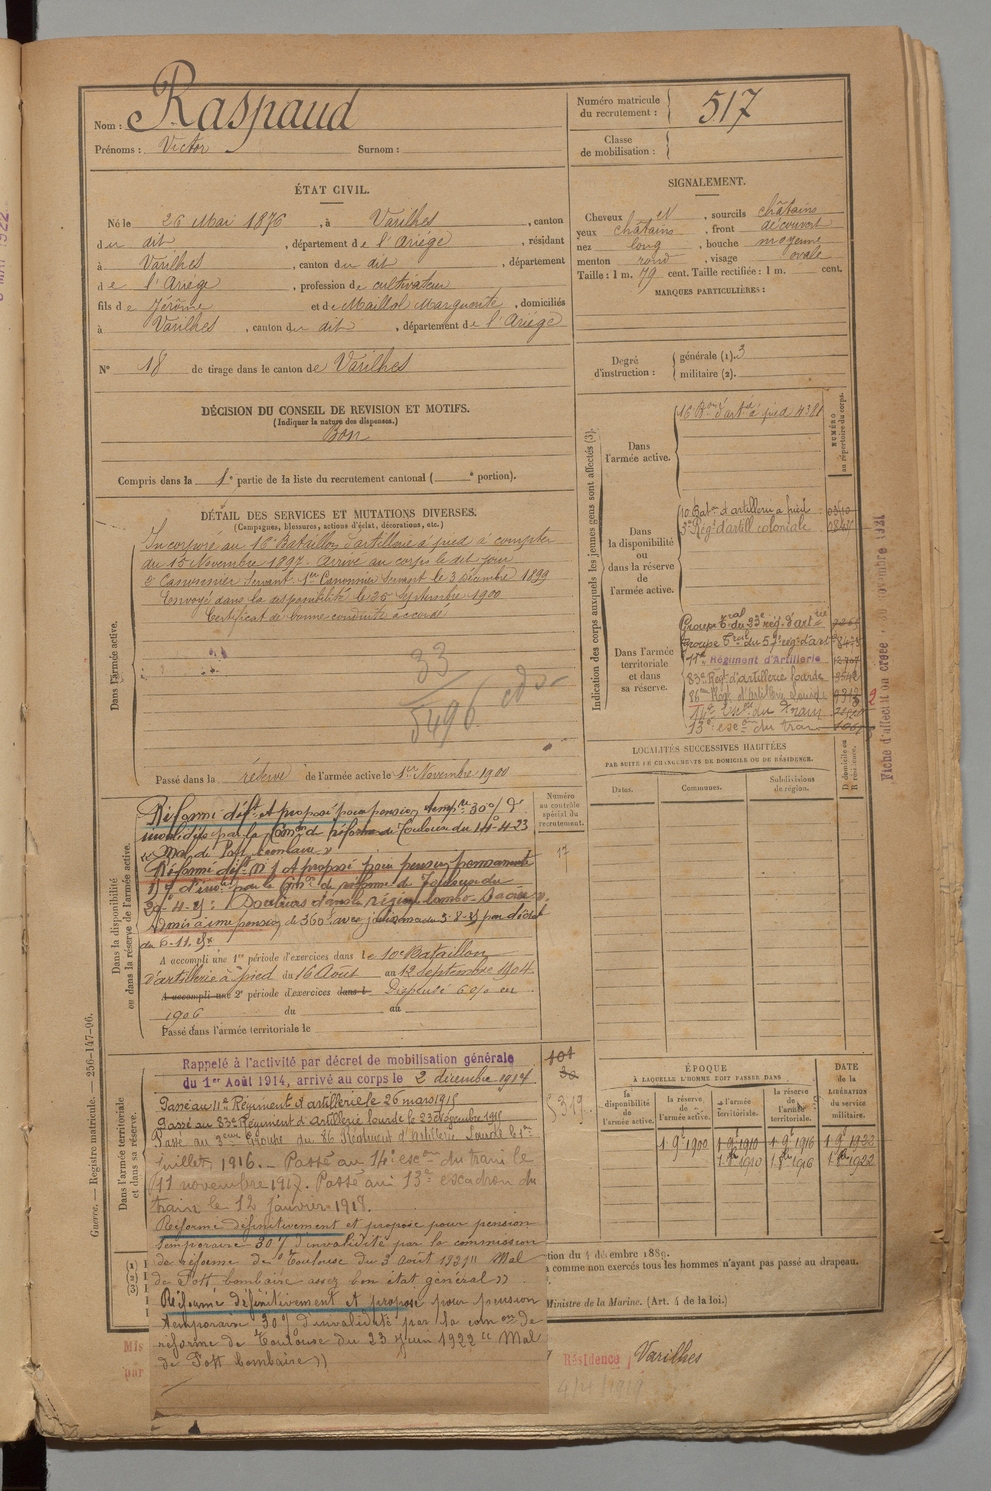 Nom : Raspaud
Prénoms : Victor Surnom :
Numéro matricule du recrutement : 517
Classe de mobilisation :
ÉTAT CIVIL.
Né le 26 Mai 1876, à Varilhes, canton
du dit, département de l'Ariège, résidant
à Varilhes, canton du dit, département
de l'Ariège, profession de cultivateur
fils de Jérôme et de Maillol Marguerite, domiciliés
à Varilhes, canton du dit, département de l'Ariège
N° 18 de tirage dans le canton de Varilhes
DÉCISION DU CONSEIL DE REVISION ET MOTIFS.
(Indiquer la nature des dispenses.)
Bon
Compris dans la 1e partie de la liste du recrutement cantonal ( e portion).
SIGNALEMENT.
Cheveux N, sourcils châtains
yeux châtains, front découvert
nez long, bouche moyenne
menton rond, visage ovale
Taille : 1 m. 79 cent. Taille rectifiée : 1 m. cent.
MARQUES PARTICULIÈRES :
Degré d'instruction : générale (1). 3
militaire (2).
DÉTAIL DES SERVICES ET MUTATIONS DIVERSES.
(Campagnes, blessures, actions d'éclat, décorations, etc.)
Dans l'armée active.
Incorporé au 16e Bataillon d'artillerie à pied à compter
du 15 Novembre 1897. Arrivé au corps le dit jour
2e Canonnier Servant. 1er Canonnier Servant le 3 Décembre 1899
Envoyé dans la disponibilité le 25 Septembre 1900
Certificat de bonne conduite accordé
33
5496
Passé dans la réserve de l'armée active le 1er Novembre 1900
Indication des corps auxquels les jeunes gens sont affectés (3).
NUMÉRO au répertoire du corps.
Dans l'armée active.
16 Bon d'art à pied 4381
Dans la disponibilité ou dans la réserve de l'armée active.
10 Baton d'artillerie à pied
3e Régt d'artill coloniale
Dans l'armée territoriale et dans sa réserve.
Groupe Tral du 23e rég. d'artrie
Groupe Teral du 57e rég d'art
11e Régiment d'Artillerie
83e Rég. d'artillerie lourde
86me Rég. d'Artillerie lourde
14e Escon du Train
13e escon du train
Fiche d'affectation créée novembre 1921
LOCALITÉS SUCCESSIVES HABITÉES
PAR SUITE DE CHANGEMENTS DE DOMICILE OU DE RÉSIDENCE.
Dates. Communes. Subdivisions de région. D domicile ou R résidence.
Dans la disponibilité ou dans la réserve de l'armée active.
Numéro au contrôle spécial du recrutement.
17
Réformé déft et proposé pour pension tempre 30% d'
invalidité par la Comon de réforme de Toulouse du 14-4-23
"Mal de Pott lombaire"
Réformé défif N° 1 et proposé pour pension permanente
Admis à une pension de 360f avec jouissance du 3-8-21 par décret
A accompli une 1re période d'exercices dans le 10e Bataillon
d'artillerie à pied du 16 Août au 12 Septembre 1904
A accompli une 2e période d'exercices dans l Dispensé 6% en
1906 du au
Passé dans l'armée territoriale le
Guerre. — Registre matricule. — 256-147-96.
Dans l'armée territoriale et dans sa réserve.
Rappelé à l'activité par décret de mobilisation générale
du 1er Août 1914, arrivé au corps le 2 décembre 1914
Passé au 11e Régiment d'artillerie le 26 mars 1915
Passé au 83e Régiment d'Artillerie lourde le 23 Novembre 1915
Passé au 3eme Groupe du 86 Régiment d'Artillerie Lourde le 1er
Juillet 1916. — Passé au 14e escon du train le
11 novembre 1917. Passé au 13e escadron du
train le 12 janvier 1918.
Réformé définitivement et proposé pour pension
temporaire 30% d'invalidité par la commission
de réforme de Toulouse du 3 août 1921 "Mal
de Pott lombaire assez bon état général"
Réformé définitivement et proposé pour pension
temporaire 30% d'invalidité par la comon de
réforme de Toulouse du 23 Juin 1922 "Mal
de Pott lombaire"
101
30
5319
ÉPOQUE
À LAQUELLE L'HOMME DOIT PASSER DANS
la disponibilité de l'armée active. la réserve de l'armée active. l'armée territoriale. la réserve de l'armée territoriale.
DATE de la LIBÉRATION du service militaire.
1 9e 1900 1 9e 1910 1 9e 1916 1 9e 1922
1 8bre 1910 1 8bre 1916 1 8bre 1922
tion du 4 décembre 1889.
a comme non exercés tous les hommes n'ayant pas passé au drapeau.
Ministre de la Marine. (Art. 4 de la loi.)
Résidence Varilhes
Mis
par